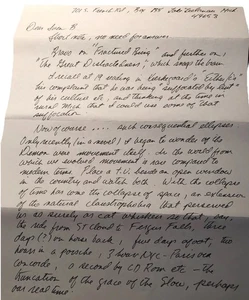 Dear Sven B
Short note, no need for answer.
Bravo on "Fractured Being" and further on,
"The Great Dislocation", which sings the brain
I recall at 19 reading in Kierkegaard's Either/Or
his complaint that he was being "suffocated by
of his culture etc, and thinking at the time in
rural Mich that I could use some of that
suffocation
Now of course .... such consequential ellipses
Only recently (in a novel) I began to wonder if the
was movement itself in the world from
which we evolved movement is rare compared to
modern times. Place a T.V. beside an open window
in the country and watch both. With the collapse
of time has come the collapse of space, an extension
of the natural claustrophobia that preserved
us as surely as cat whiskers so that, say,
the ride from St Cloud to Fergus Falls, three
days (?) on horseback, five days afoot, two
hours in a porsche, 3 hours NYC-Paris via
concorde, a second by CD Rom etc - the
truncation of the grace of the slow, perhaps
our real time.